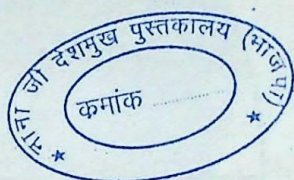 नाना जी देशमुख पुस्तकालय (भाजपा)
कमांक ..............